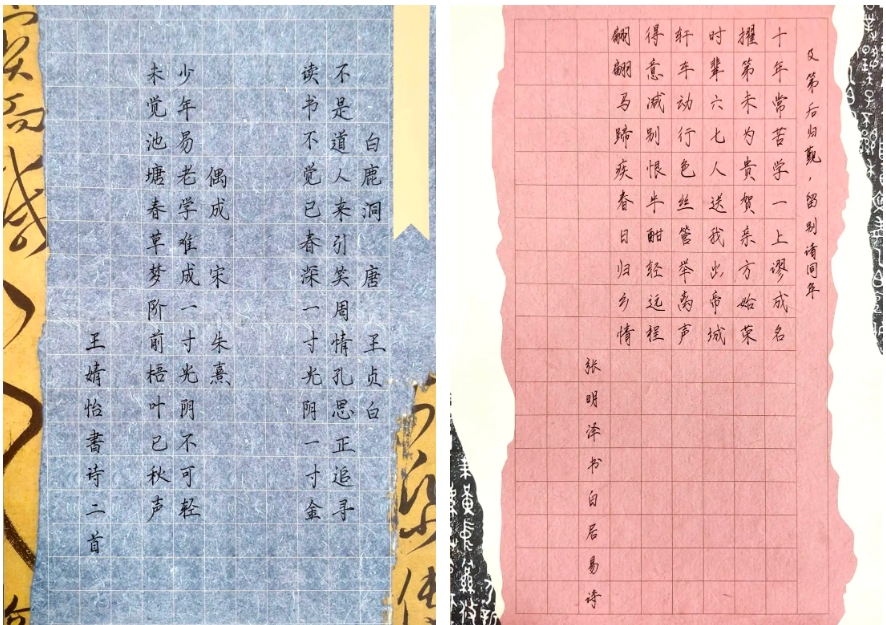 白鹿洞 唐 王贞白
不是道人来引笑周情孔思正追寻
读书不觉已春深一寸光阴一寸金
偶成 宋 朱熹
少年易老学难成一寸光阴不可轻
未觉池塘春草梦阶前梧叶已秋声
王婧怡書诗二首
及第后归觐，留别诸同年
十年常苦学一上谬成名
擢第未为貴贺亲方始荣
时辈六七人送我出帝城
轩车动行色丝管举离声
得意减别恨半酣轻远程
翩翩马蹄疾春日归乡情
张明泽书白居易诗